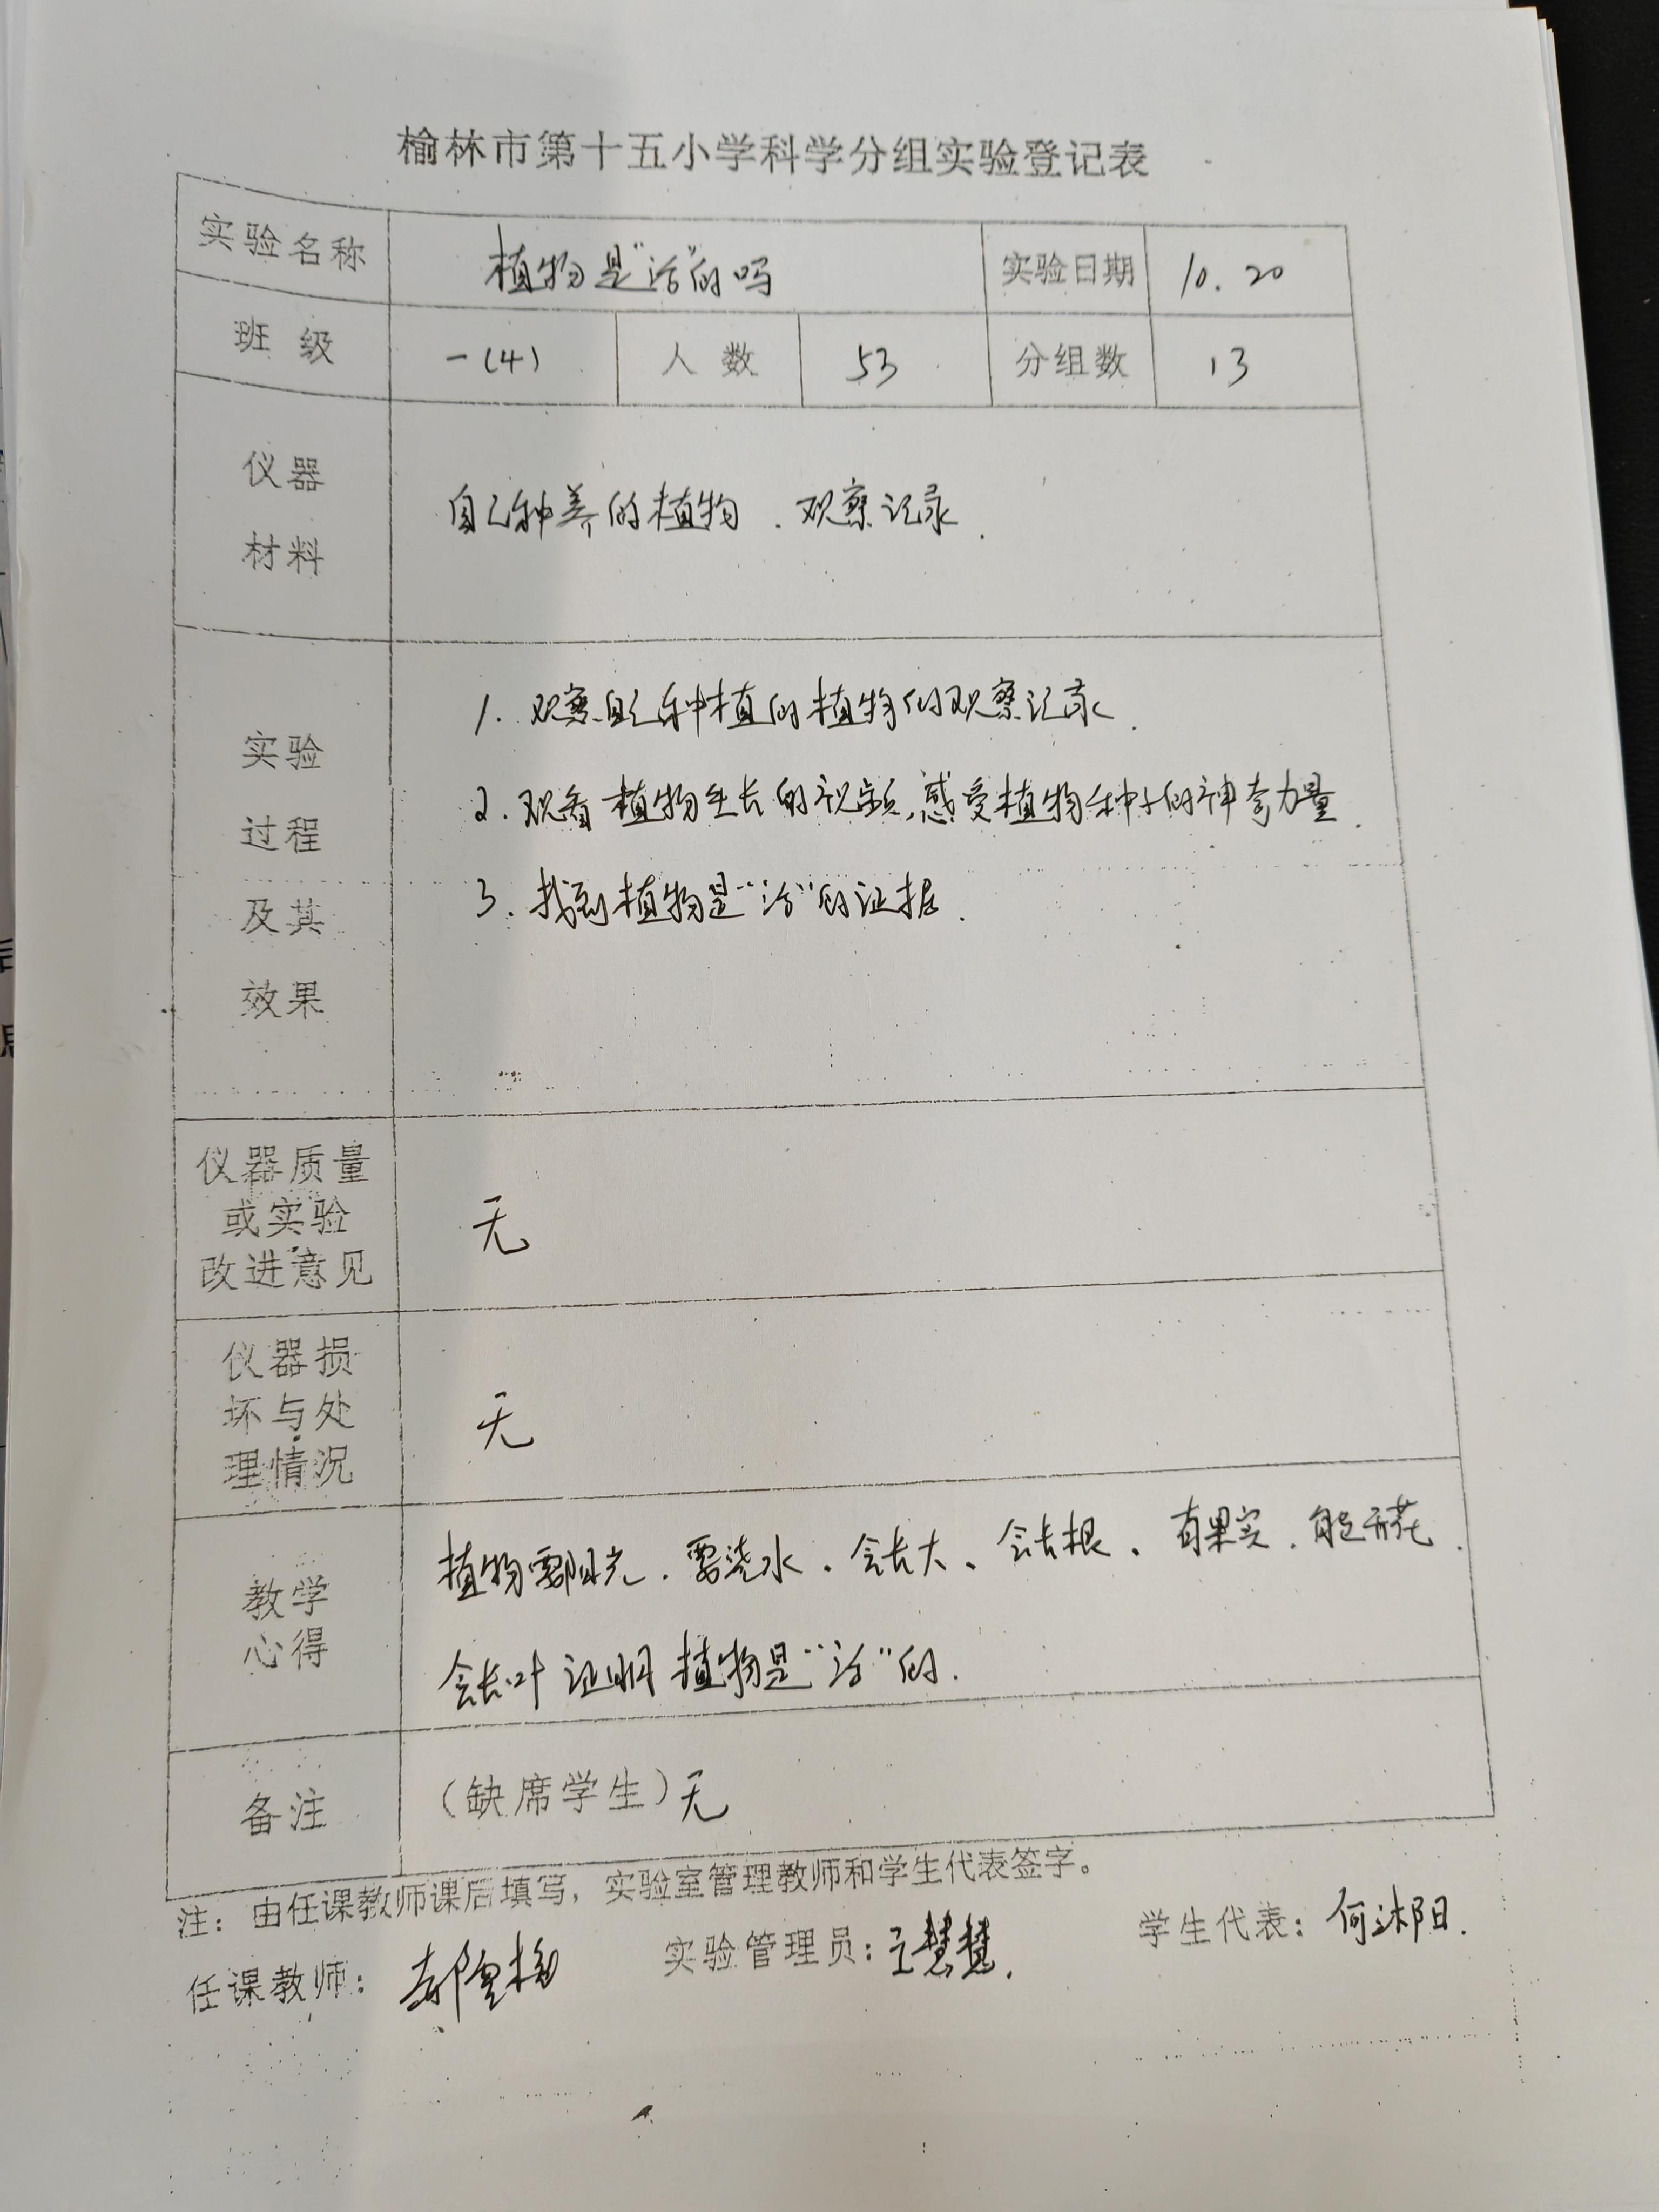 榆林市第十五小学科学分组实验登记表
实验名称 植物是“活”的吗 实验日期 10.20
班 级 一(4) 人 数 53 分组数 13
仪器
材料
自己种养的植物、观察记录.
实验
过程
及其
效果
1. 观察自己种植的植物的观察记录.
2. 观看植物生长的视频,感受植物种子的神奇力量.
3. 找到植物是“活”的证据.
仪器质量
或实验
改进意见
无
仪器损
坏与处
理情况
无
教学
心得
植物需阳光、需浇水、会长大、会长根、有果实、能开花.
会长叶证明植物是“活”的.
备注 (缺席学生)无
注：由任课教师课后填写，实验室管理教师和学生代表签字。
任课教师： 实验管理员：王慧慧. 学生代表：何沐阳.